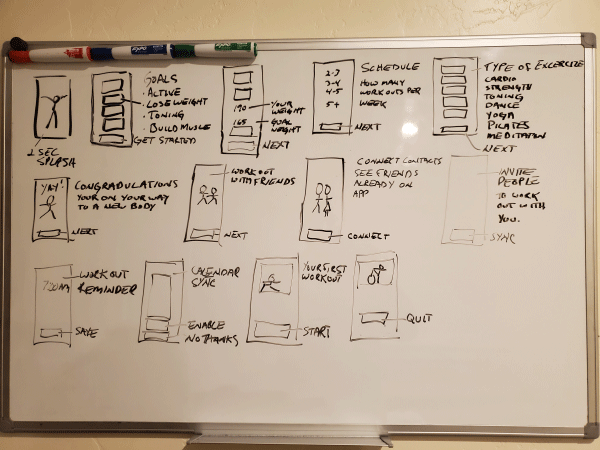 2 SEC
SPLASH
GOALS
• ACTIVE
• LOSE WEIGHT
• TONING
• BUILD MUSCLE
GET STARTED
190
YOUR
WEIGHT
165
GOAL
WEIGHT
NEXT
2-3
3-4
4-5
5+
SCHEDULE
HOW MANY
WORKOUTS PER
WEEK
NEXT
TYPE OF EXCERCIZE
CARDIO
STRENGTH
TONING
DANCE
YOGA
PILATES
MEDITATION
NEXT
YAY!
CONGRADULATIONS
YOUR ON YOUR WAY
TO A NEW BODY
NEXT
WORKOUT
WITH FRIENDS
NEXT
CONNECT CONTACTS
SEE FRIENDS
ALREADY ON
APP
CONNECT
INVITE
PEOPLE
TO WORK
OUT WITH
YOU.
SYNC
WORKOUT
REMINDER
SAVE
CALENDAR
SYNC
ENABLE
NO THANKS
YOUR FIRST
WORKOUT
START
QUIT